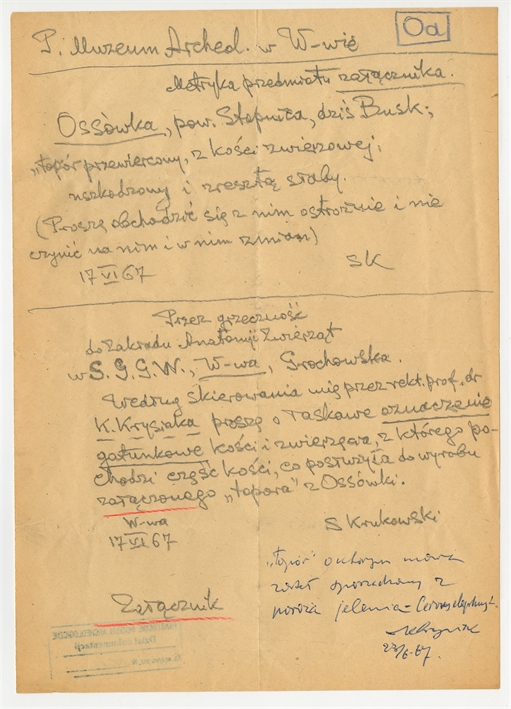 P. Muzeum Archeol. w W-wie
Oa
Metryka przedmiotu załącznika.
Ossówka, pow. Stopnica, dziś Busk;
„topór przewiercony, z kości zwierzęcej;
uszkodzony i zresztą słaby.
(Proszę obchodzić się z nim ostrożnie i nie
czynić na nim i w nim zmian)
17 VI 67
SK
Przez grzeczność
do Zakładu Anatomii Zwierząt
w S.G.G.W., W-wa, Grochowska.
Według skierowania mię przez rekt. prof. dr
K. Krysiaka proszę o łaskawe oznaczenie
gatunkowe kości i zwierzęcia, z którego po-
chodzi część kości, co posłużyła do wyrobu
załączonego „topora" z Ossówki.
W-wa
17 VI 67
S Krukowski
„topór" o którym mowa
został sporządzony z
poroża jelenia - Cervus elaphus L.
KKrysiak
27/6.67.
Załącznik
PAŃSTWOWE MUZEUM ARCHEOLOGICZNE
Dział dokumentacji